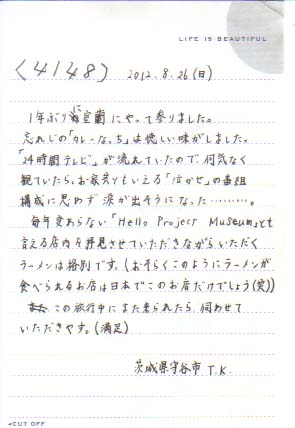 LIFE IS BEAUTIFUL
〈4148〉 2012.8.26(日)
1年ぶりに室蘭にやって参りました。
忘れじの「カレーなっち」は懐しい味がしました。
「24時間テレビ」が流れていたので、何気なく
観ていたら、お家芸ともいえる「泣かせ」の番組
構成に思わず涙が出そうになった………。
毎年変わらない「Hello Project Museum」とも
言える店内を拝見させていただきながらいただく
ラーメンは格別です。(おそらくこのようにラーメンが
食べられるお店は日本でこのお店だけでしょう(笑))
この旅行中にまた来られたら、伺わせて
いただきやす。(満足)
茨城県守谷市 T.K.
CUT OFF